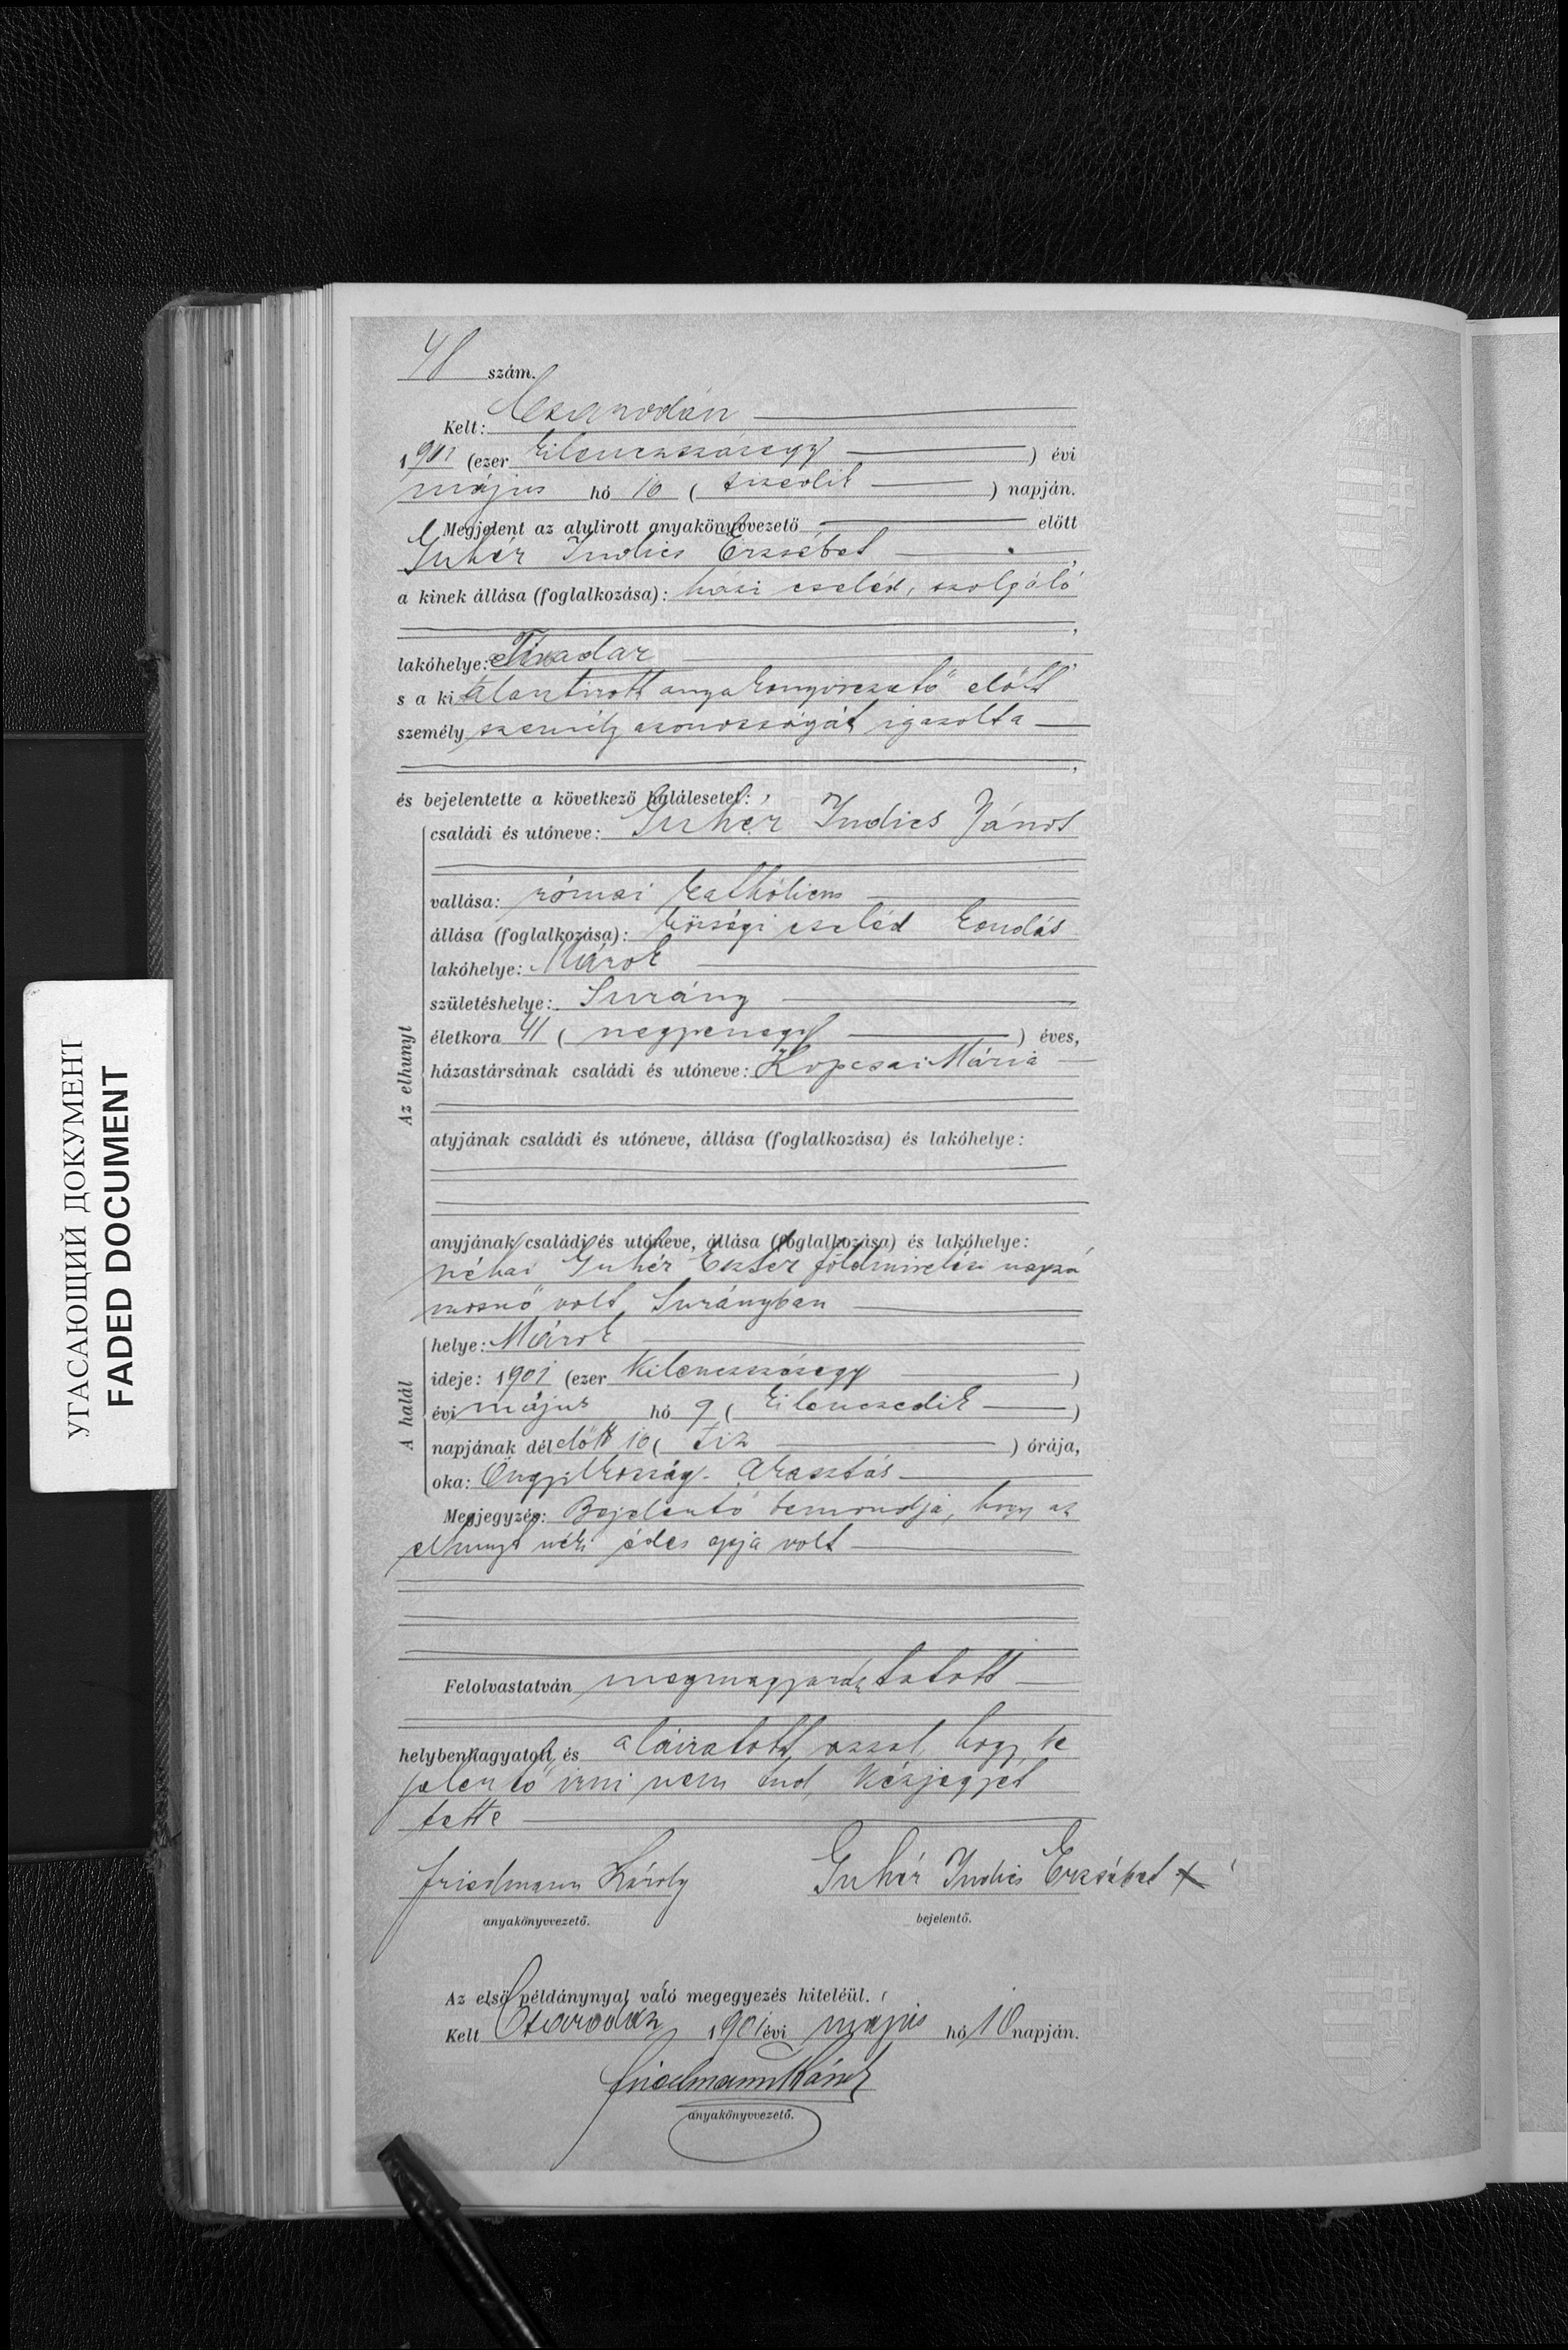 48 szám.
Kelt: Csarodán
1901 (ezer kilenczszázegy) évi
május hó 10 (tizedik) napján.
Megjelent az alulirott anyakönyvvezető előtt
Guhér Indics Erzsébet,
a kinek állása (foglalkozása): házi cseléd, szolgáló
lakóhelye: Tivadar
s a ki alantirott anyakönyvvezető előtt
személy személyazonosságát igazolta
és bejelentette a következő halálesetet:
Az elhunyt
családi és utóneve: Guhér Indics János
vallása: római katholicus
állása (foglalkozása): községi cseléd kondás
lakóhelye: Márok
születéshelye: Surány
életkora 41 (negyvenegy) éves,
házastársának családi és utóneve: Kopcsai Mária
atyjának családi és utóneve, állása (foglalkozása) és lakóhelye:
anyjának családi és utóneve, állása (foglalkozása) és lakóhelye:
néhai Guhér Eszter földmivelési napszá
mosnő volt, Surányban
A halál
helye: Márok
ideje: 1901 (ezer kilenczszázegy)
évi május hó 9 (kilenczedik)
napjának délelőtt 10 (tiz) órája,
oka: Öngyilkosság. Akasztás
Megjegyzés: Bejelentő bemondja, hogy az
elhunyt néki édes apja volt
Felolvastatván megmagyaráztatott
helybenhagyatott és aláiratott azzal, hogy be
jelentő irni nem tud, kézjegyét
tette
Friedmann Károly Guhér Indics Erzsébet x
anyakönyvvezető. bejelentő.
Az első példánynyal való megegyezés hiteléül.
Kelt Csarodán 1901 évi május hó 10 napján.
Friedmann Károly
anyakönyvvezető.
УГАСАЮЩИЙ ДОКУМЕНТ
FADED DOCUMENT